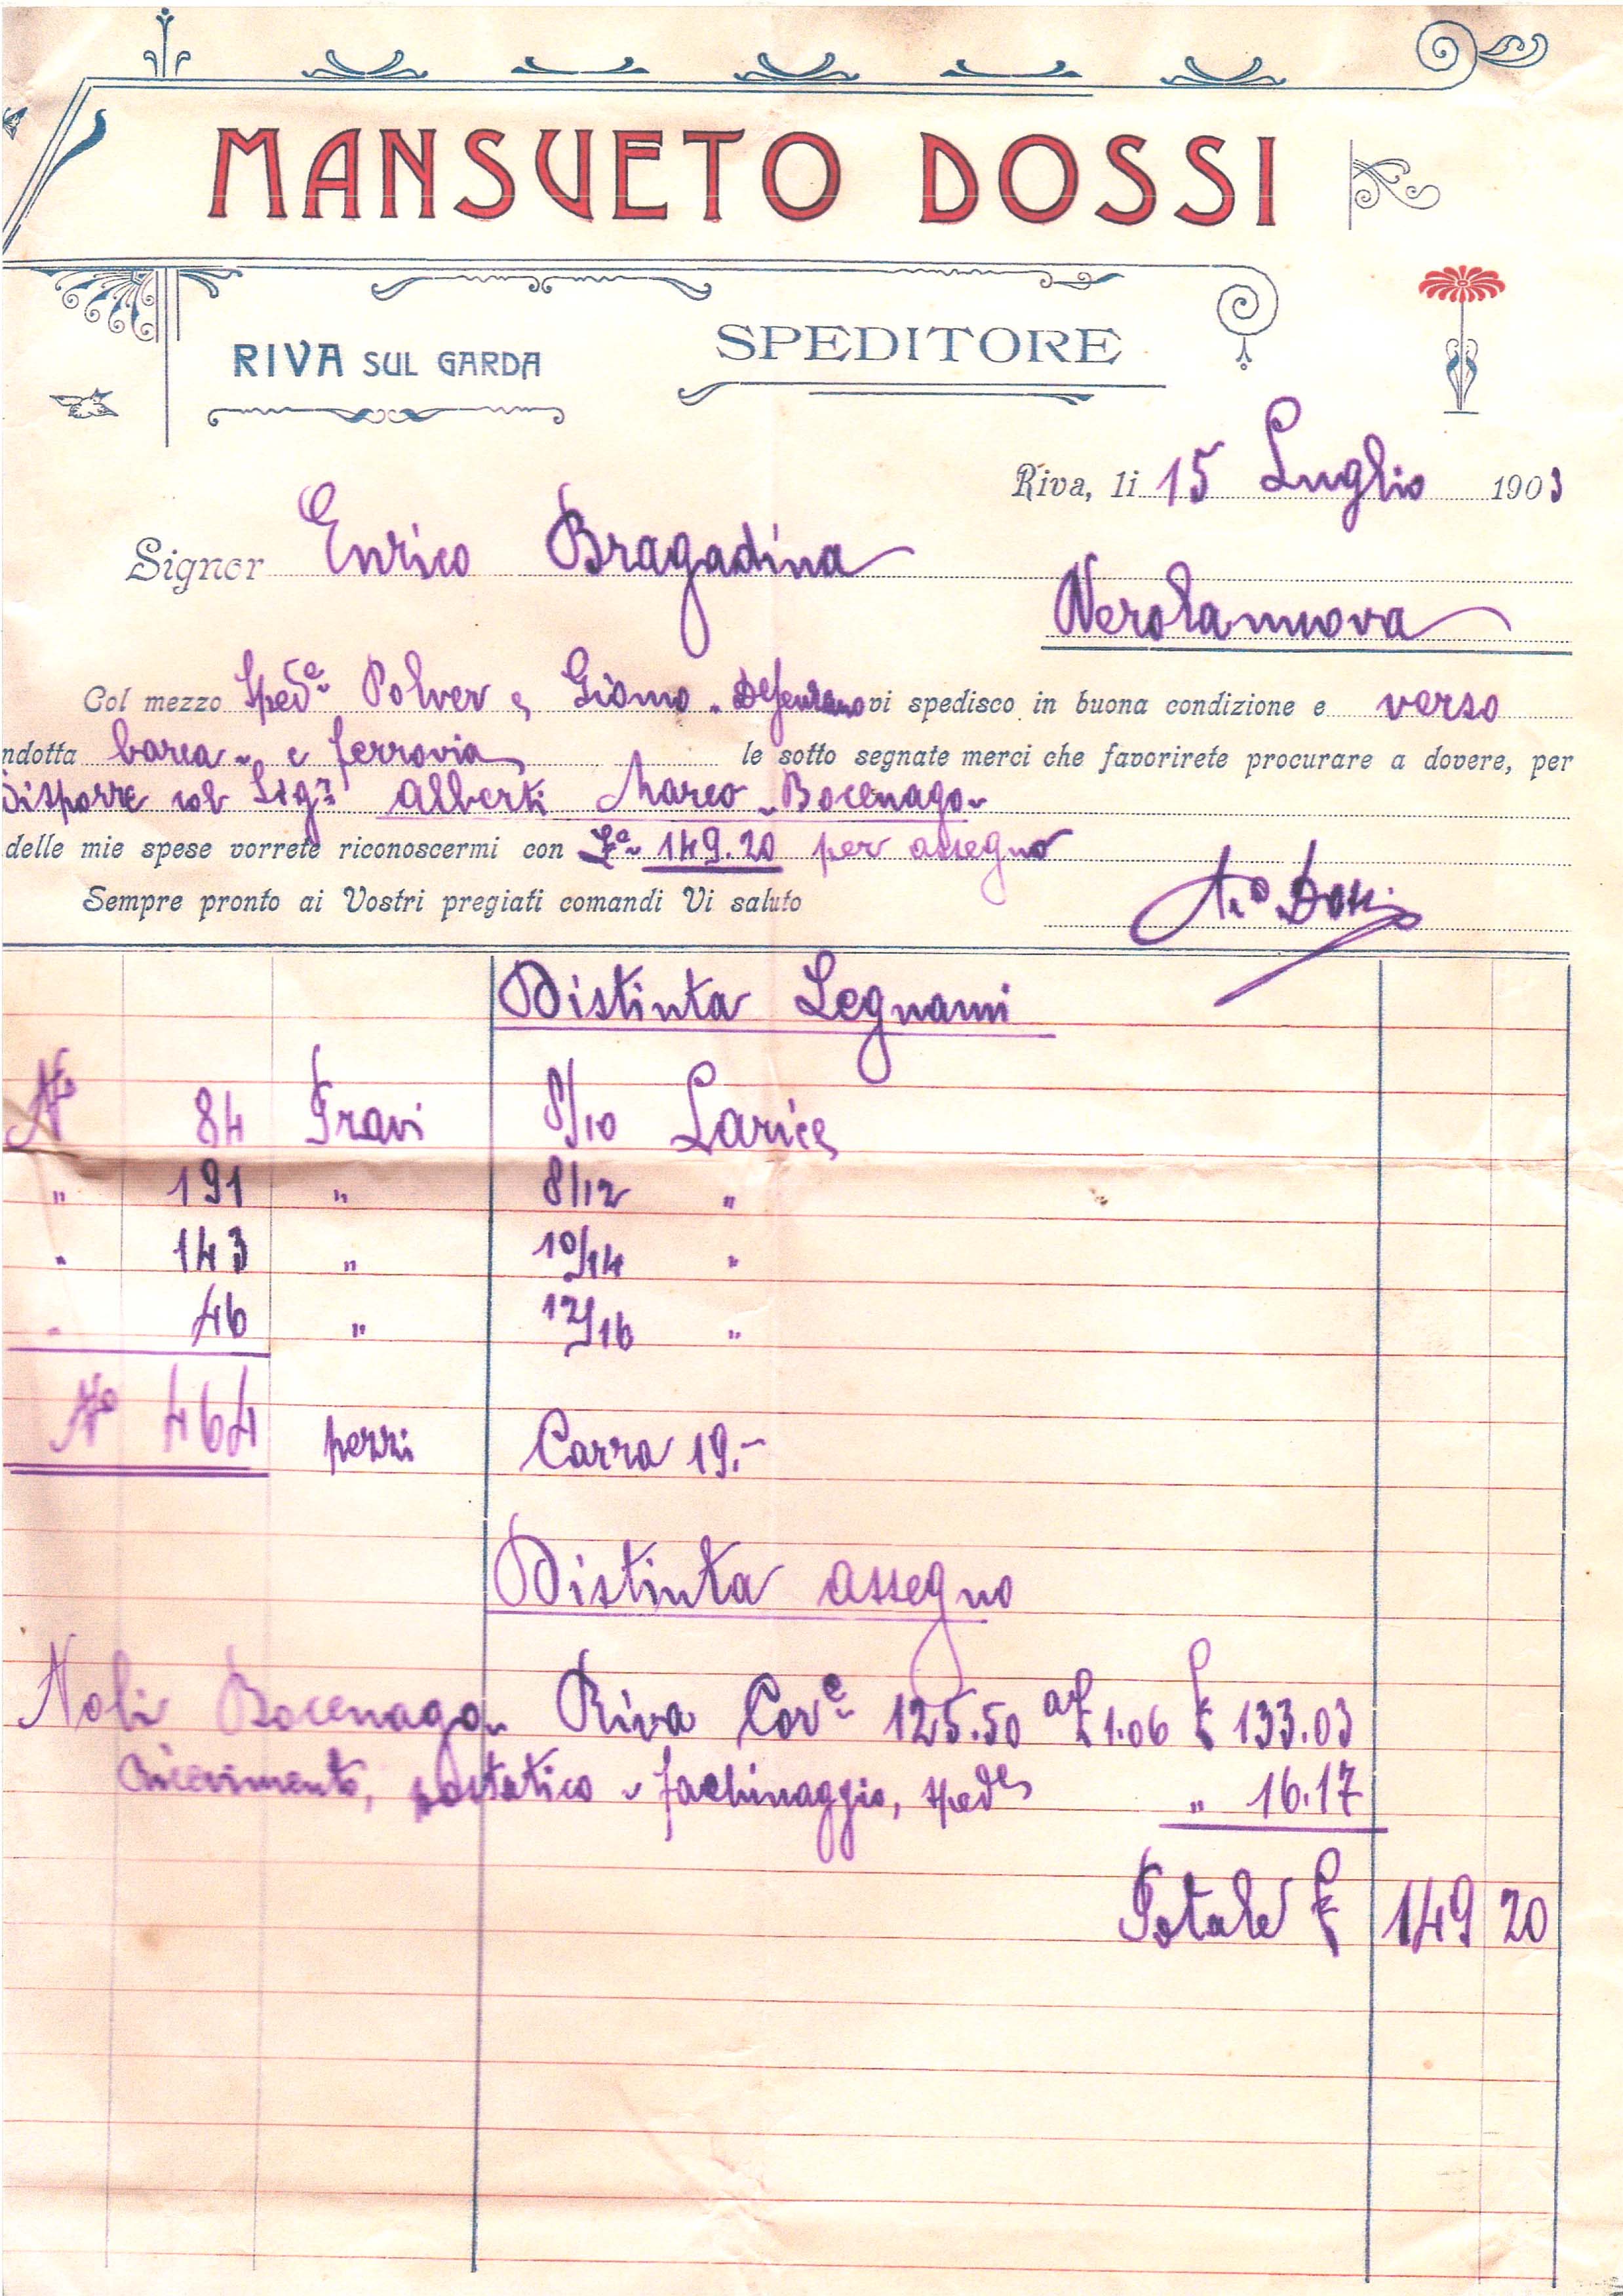 MANSUETO DOSSI
RIVA SUL GARDA
SPEDITORE
Riva, li 15 Luglio 1903
Signor Enrico Bragadina
Verolanuova
Col mezzo Sped.e Polver e Giomo - Desenzano vi spedisco in buona condizione e verso
ndotta barca e ferrovia le sotto segnate merci che favorirete procurare a dovere, per
Disporre col Sig.r Alberti Marco - Bocenago
delle mie spese vorrete riconoscermi con 149.20 per assegno
Sempre pronto ai Vostri pregiati comandi Vi saluto
Dossi
Distinta Legnami
No 84 Travi 8/10 Larice
" 191 " 8/12 "
" 143 " 10/14 "
" 46 " 12/16 "
No 464 pezzi Carra 19.-
Distinta assegno
Noli Bocenago Riva Cor.e 125.50 a £ 1.06 £ 133.03
Ricevimento, fachinaggio, sped.e " 16.17
Totale £ 149 20